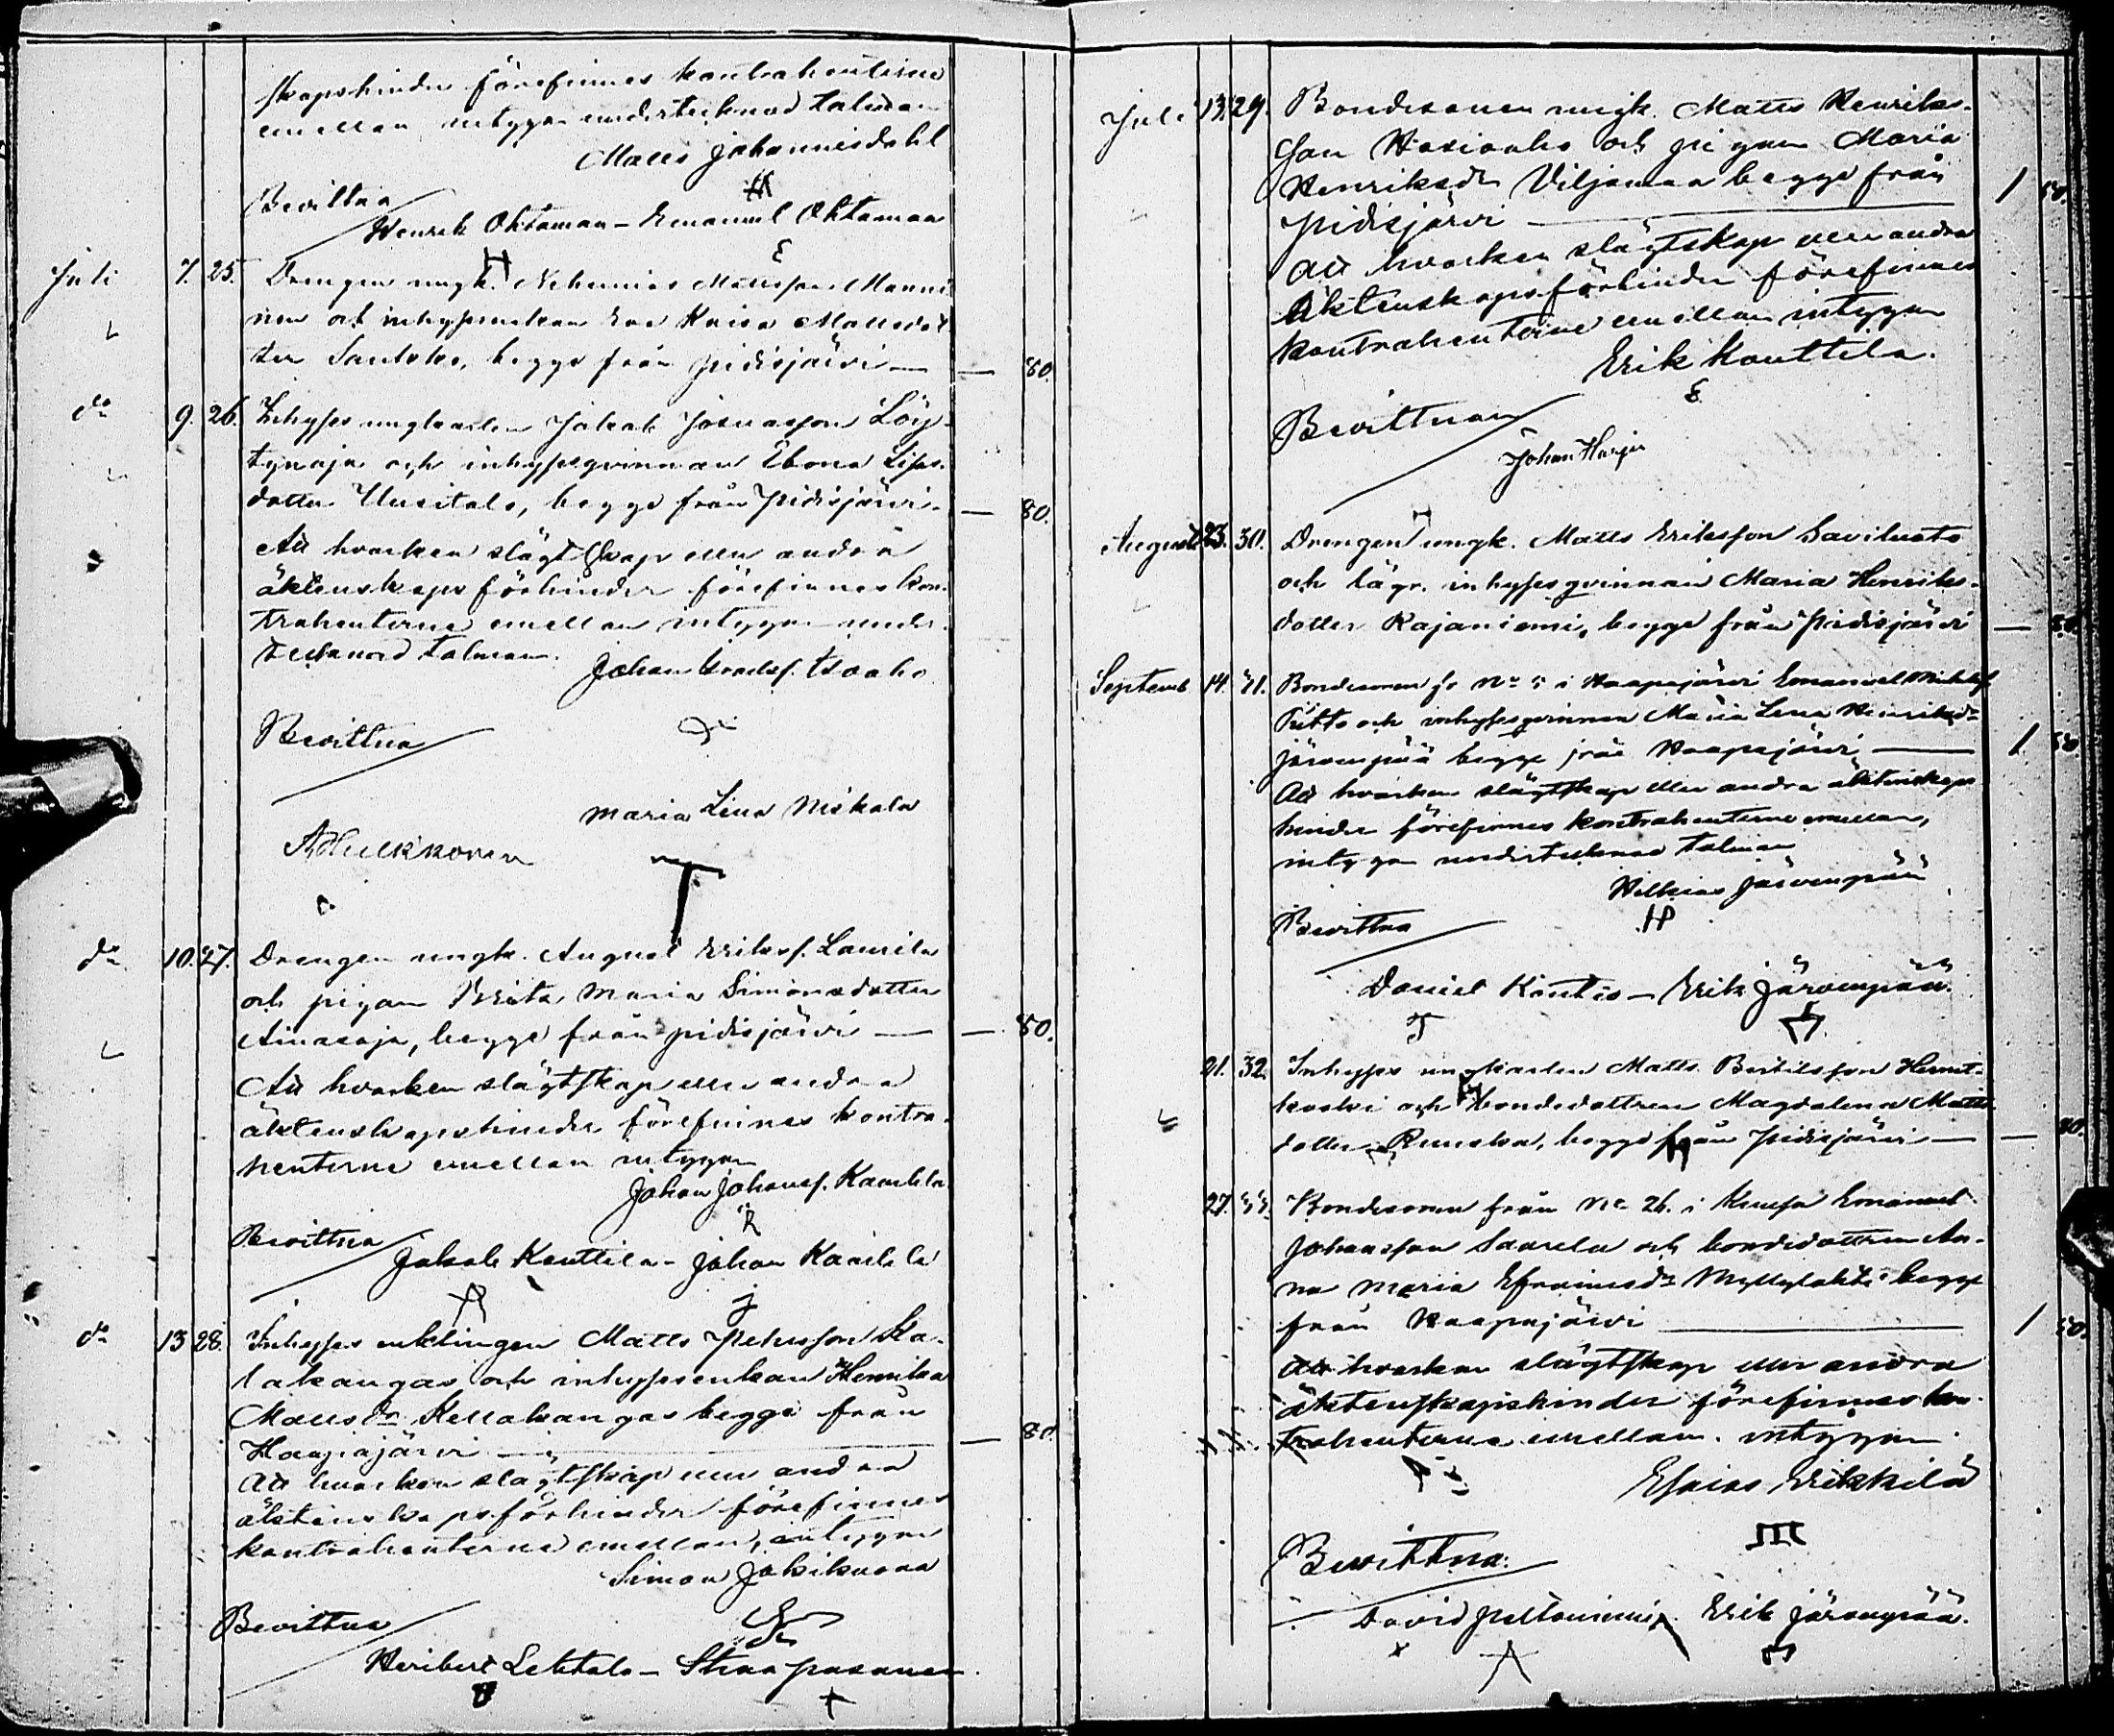 skapshinder förefinnes kontrahenterne
emellan intygar undertecknad talman
Matts Johannisdahl
Bevittna
Henrik Ohtaman - Emanuel Ohtamaa
Juli 7. 25. Drengen ungk. Nehemias Mattsson Manni-
nen och inhysenkan Eva Kaisa Mattsdot-
ter Santoho, begge från Pidisjärvi — 80.
do 9. 26. Inhyses ungkarlen Jakob Josuasson Löy-
tynoja och inhysesqvinnan Ebona Lisas-
dotter Uusitalo, begge från Pidisjärvi — 80.
Att hvarken slägtskap eller andra
äktenskaps förhinder förefinnes kon-
trahenterne emellan intygar under-
tecknad talman.
Johan Isoaho
Bevittna
Maria Lena Niskala
A Hukkonen
do 10. 27. Drengen ungk. August Erikss. Laurila
och pigan Brita Maria Simonsdotter
Ainasoja, begge från Pidisjärvi — 80.
Att hvarken slägtskap eller andra
äktenskapshinder förefinnes kontra-
henterne emellan intygar
Johan Johanss. Kaarlela
Bevittna
Jakob Kauttila - Johan Kaarlela
do 13 28. Inhyses enklingen Matts Pehrsson Ka-
lakangas och inhysesenkan Henrika
Mattsdr Kellokangas begge från
Haapajärvi — 80.
Att hvarken slägtskap eller andra
äktenskapsförhinder förefinnes
kontrahenterne emellan, intygar
Simon Jokikuona
Bevittna
Heribert Lehtola - Stina Pasanen.
Juli 13. 29. Bondesonen ungk. Matts Henriks-
son Wasioaho och pigan Maria
Henriksdr Viljamaa begge från
Pidisjärvi — 1 60.
Att hvarken slägtskap eller andra
äktenskapsförhinder förefinnes
kontrahenterne emellan intygar
Erik Kauttila.
Bevittnar
Johan Harju
August 23. 30. Drengen ungk. Matts Eriksson Saviluoto
och lägr. inhysesqvinnan Maria Henriks-
dotter Rajaniemi, begge från Pidisjärvi — 80.
Septemb. 14. 31. Bondesonen fr No 5 i Haapajärvi Emanuel
Putto och inhysesqvinnan Maria Lena Henriksdr
Järvenpää begge från Haapajärvi — 1 60
Att hvarken slägtskap eller andra äktenskaps-
hinder förefinnes kontrahenterne emellan,
intygar undertecknad talman
Hilkias Järvenpää
Bevittna
Daniel Kontio - Erik Järvenpää
21. 32. Inhyses ungkarlen Matts Bertilsson Hemit-
koski och bondedottren Magdalena Matts-
dotter Ruuska, begge från Pidisjärvi — 80.
27. 33. Bondesonen från No 26. i Kuusa Emanuel
Johansson Saarela och bondedottren An-
na Maria Efraimsdr Myllylahti begge
från Haapajärvi — 1 60.
Att hvarken slägtskap eller andra
äktenskapshinder förefinnes kon-
trahenterne emellan. intygar
Esaias Erikkilä
Bevittna:
David Peltoniemi Erik Järvenpää.